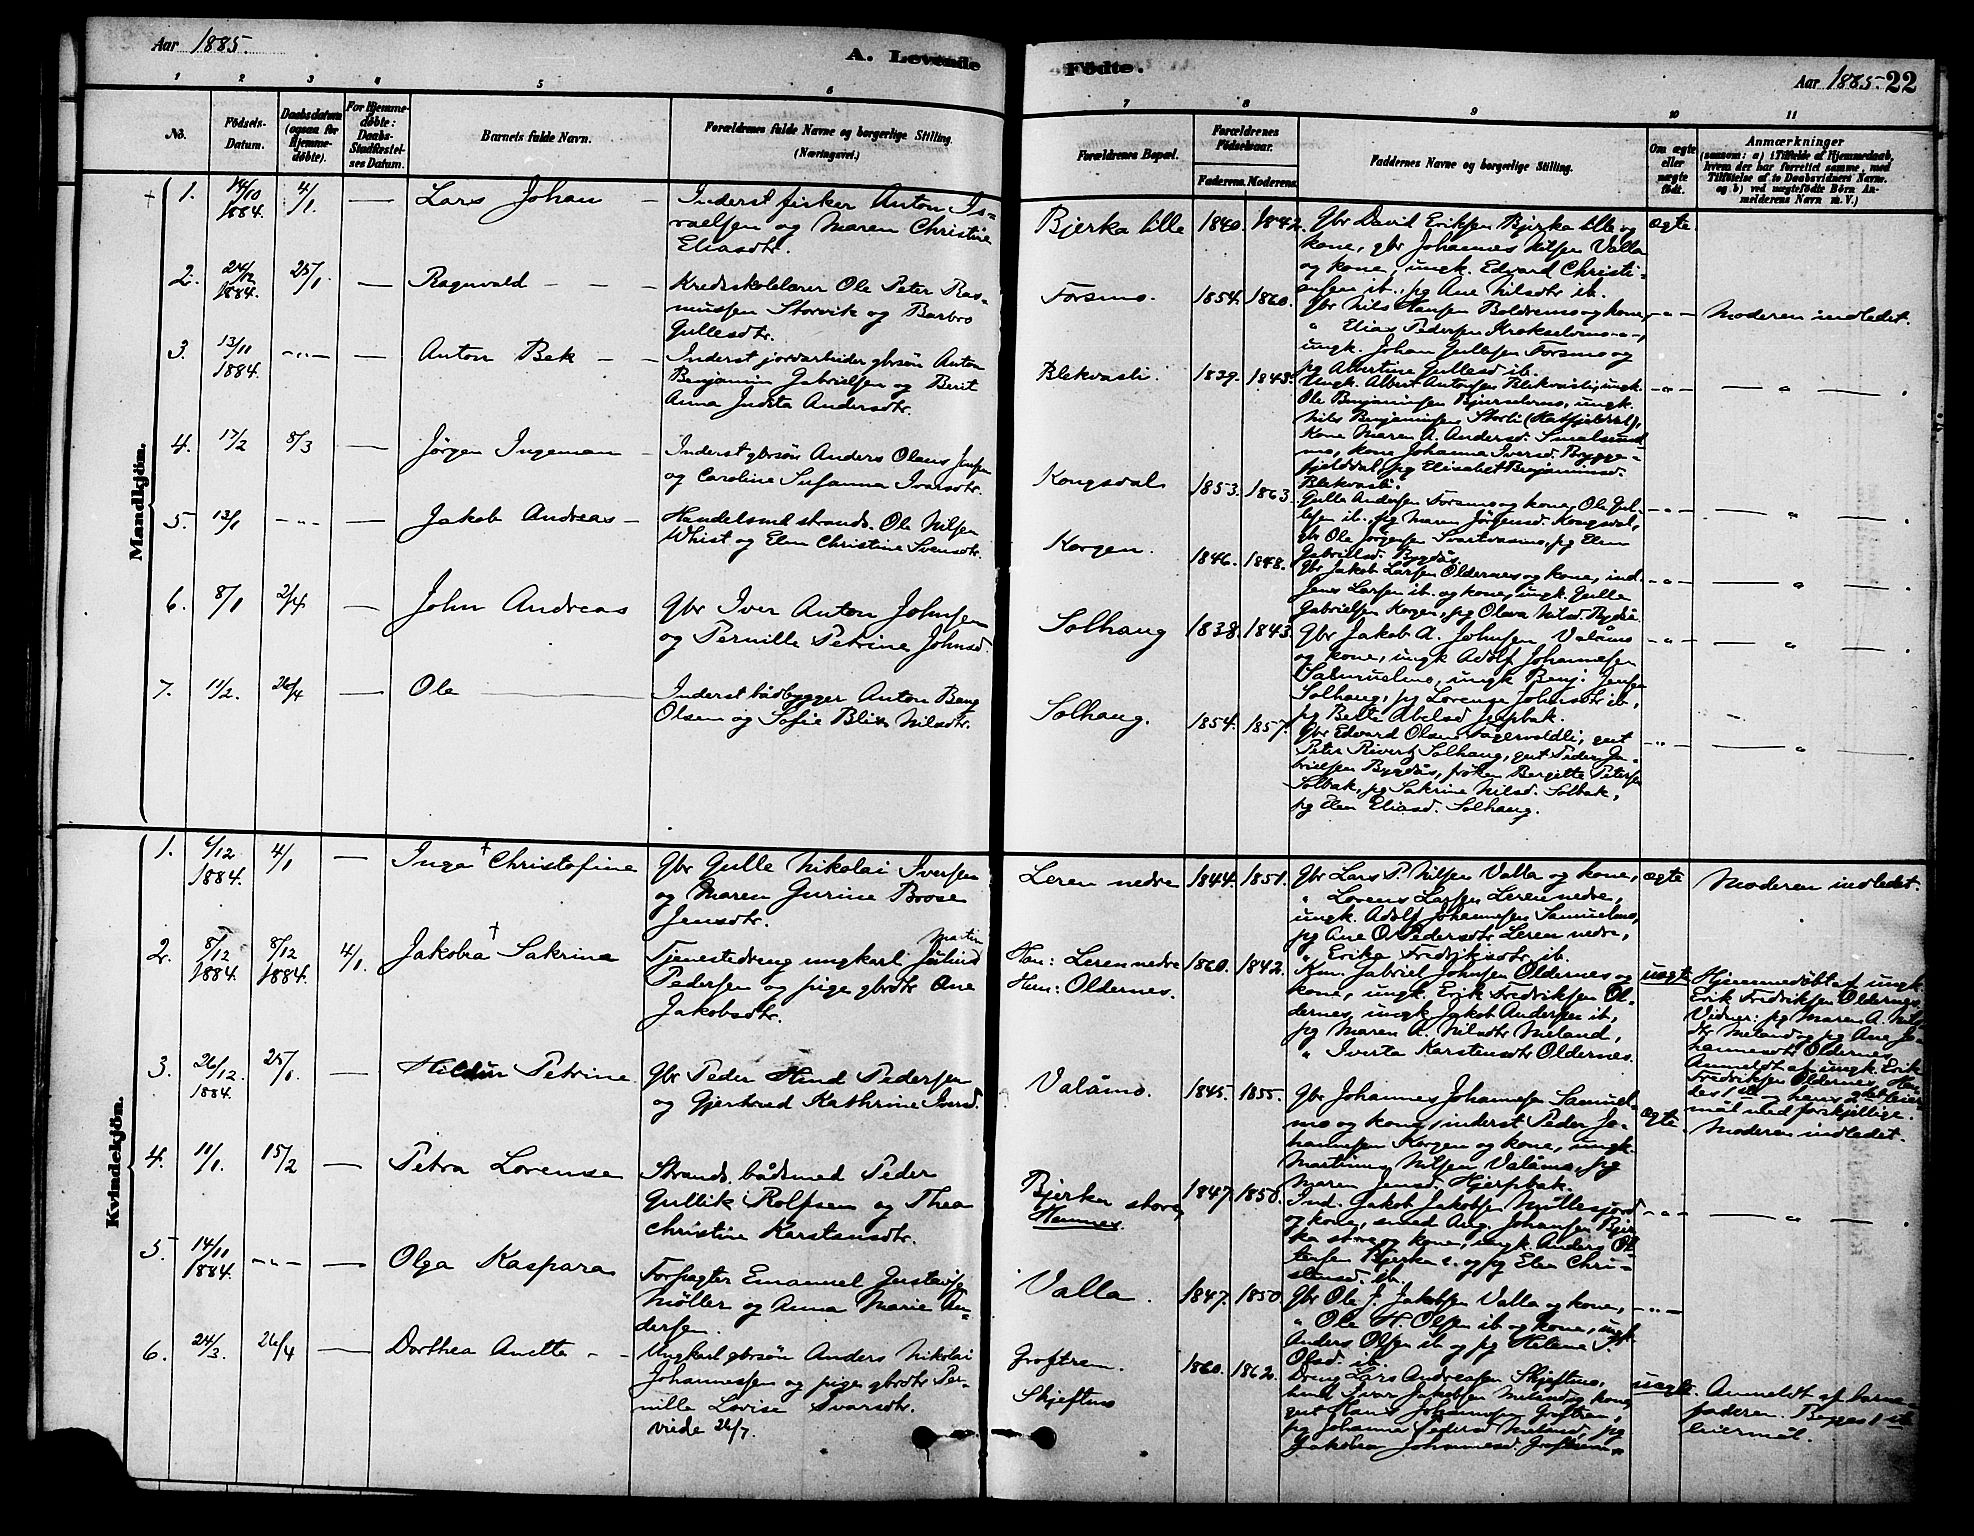 Aar 1885.
A. Levende
Födte.
Aar 1885. 22
1 2 3 4 5 6
7 8 9 10 11
No.
Födsels-
Datum.
Daabsdatum
(ogsaa for
Hjemme-
döbte).
For Hjemme-
döbte:
Daabs-
Stadfæstel-
ses Datum.
Barnets fulde Navn.
Forældrenes fulde Navne og borgerlige Stilling.
(Næringsvei.)
Forældrenes Bopæl.
Forældrenes
Födselsaar.
Faderens. Moderens.
Faddernes Navne og borgerlige Stilling.
Om ægte
eller
uægte
födt.
Anmærkninger
(saasom: a) i Tilfælde af Hjemmedaab,
hvem der har forrettet samme, med
Tilföielse af to Daabsvidners Navne.
og b) ved uægtefödte Börn An-
melderens Navn m. V.)
Mandkjön.
1. 14/10 1884. 4/1. — Lars Johan —
Inderst fisker Anton Is-
raelsen og Maren Christine
Eliasdtr.
Bjerka lille 1840. 1842.
Gbr David Eriksen Bjerka lille og
kone, gbr Johannes Nilsen Valla
og kone, ungk. Edvard Christi-
ansen ib., pg Ane Nilsdtr ib.
ægte
2. 24/12 1884. 25/1 — Ragnvald — —
Kredsskolelærer Ole Peter Ras-
mussen Storvik og Barbro
Gullesdtr.
Forsmo. 1854. 1860.
Gbr Nils Hansen Boldermo og kone,
" Elias Pedersen Krokselvmo — " —,
ungk. Johan Gullesen Forsmo og
pg Albertine Gullesd ib.
— " — Moderen indledet.
3. 13/11 1884. — " — — Anton Bek — —
Inderst jordarbeider gbrsön Anton
Benjamin Gabrielsen og Berit
Anna Judita Andersdtr.
Blekvasli. 1839. 1843.
Ungk. Albert Antonsen Blekvasli, ungk.
Ole Benjaminsen Bjurselvmo, ungk.
Nils Benjaminsen Storli (Hatfjelddal),
Kone Maren A. Andersd. Smalsund-
mo, kone Johanna Iversd. Bygge-
fjelddal, pg Elisabet Benjaminsd.
Blekvasli.
— " — — " — .
4. 17/2 8/3 — Jörgen Ingeman —
Inderst gbrsön Anders Olaus Jensen
og Caroline Susanna Ivarsdtr.
Kongsdal 1853. 1863.
Gulle Andersen Forsmo og kone, Ole Gul-
lesen ib., pg Maren Jörgensd. Kongsdal,
gbr Ole Jörgensen Svartvasmo, pg Elen
Gabrielsd. Bygdås.
— " — — " — .
5. 13/1 — " — — Jakob Andreas —
Handelsmd strands. Ole Nilsen
Whist og Elen Christine Svensdtr.
Korgen. 1846. 1848.
Gbr Jakob Larsen Oldernes og kone, ind.
Jens Larsen ib. og kone, ungk. Gulle
Gabrielsen Korgen, pg Olava Nilsd. Bygdås
— " — — " — .
6. 8/1 2/4 — John Andreas
Gbr Iver Anton Johnsen
og Pernille Petrine Johnsd.
Solhaug 1838. 1843.
Gbr Jakob A. Johnsen Valåmo
og kone, ungk Adolf Johannesen
Samuelmo, ungk Benj. Jensen
Solhaug, pg Lorense Johnsdtr ib,
pg Berte Abelsd Jerpbak.
— " — — " — .
7. 11/2. 26/4 — Ole
Inderst bådbygger Anton Bang
Olsen og Sofie Blix Nilsdtr.
Solhaug. 1854. 1857.
Gbr Edvard Olsen Fagervoldli, gut
Peter Rivertz Solhaug, gut Peder Ga-
brielsen Bygdås, fröken Bergitte Petersen
Solbak, pg Sakrine Nilsd. Solbak,
pg Elen Eliasd. Solhaug.
— " — — " — .
Kvindekjön.
1. 6/12 1884. 4/1 — Inga Christofine
Gbr Gulle Nikolai Iversen
og Maren Gurine Boose
Jensdtr.
Leren nedre 1844. 1851.
Gbr Lars P. Nilsen Valla og kone,
" Lorens Larsen Leren nedre,
ungk. Adolf Johannesen Samuelmo,
pg Ane O. Pedersdtr Leren nedre,
" Erika Fredriksdtr ib.
ægte Moderen indledet.
2. 8/12 1884. 8/12 1884. 4/1. Jakobea Sakrine
Martin
Tjenestedreng ungkarl Julius
Pedersen og pige gbrdtr Ane
Jakobsdtr.
Han: Leren nedre
Hun: Oldernes. 1860. 1842.
Km. Gabriel Johnsen Oldernes og
kone, ungk. Erik Fredriksen Ol-
dernes, ungk Jakob Andersen ib,
pg Maren A. Nilsdtr Meland,
" Iverta Karstensdtr Oldernes.
uægte
Hjemmedöbt af ungk.
Erik Fredriksen Oldernes.
Vidner: pg Maren A. Nils-
dtr Meland og pg Ane Jo-
hannesdtr Oldernes
Anmeldt af ungk. Erik
Fredriksen Oldernes. Hen-
des 1ste og hans 2det leier-
mål med forskjellige.
3. 26/12. 1884. 25/1. — Petrine.
Gbr Peder Hind Pedersen
og Gjertrud Kathrine Iversd.
Valåmo. 1845. 1855.
Gbr Johannes Johannesen Samuel-
mo og kone, inderst Peder Jo-
hannesen Korgen og kone, ungk.
Martinus Nilsen Valåmo, pg
Maren Jensd. Hjerpbak.
ægte. Moderen indledet.
4. 11/1. 15/2 — Petra Lorense
Strands. bådsmed Peder
Gullik Rolfsen og Thea
Christine Karstensdtr.
Bjerka store,
Hemnes. 1847. 1850.
Ind. Jakob Jakobsen
og kone, smed Aug. Johansen Bjer-
ka store og kone, ungk. Anders Ol-
sen Bjerka s. og pg Elen Chri-
stensd. ib.
— " — — " — .
5. 14/11 1884. — " — — Olga Kaspara
Forpagter Emanuel Gustavsen
Möller og Anna Marie An-
dersen.
Valla. 1847. 1850
Gbr Ole J. Jakobsen Valla og kone,
" Ole H. Olsen ib og kone, ungk
Anders Olsen ib og pg Helene J.
Olsd. ib.
— " —
6. 24/3. 26/4 — Dorthea Anetta — —
Ungkarl gbrsön Anders Nikolai
Johannessen og pige gbrdtr Per-
nille Lovise Ivarsdtr.
viede 26/7
Groftrem.
Skjeftmo 1860. 1862.
Dreng Lars Andreassen Skjeftmo,
Ivar Jakobsen Meland og kone,
gut Hans Johannesen Groftrem,
pg Johanna Pedersd Meland, pg
Jakobea Johannesd. Groftrem.
uægte. Anmeldt af barne-
faderen. Begges 1ste
leiermål.